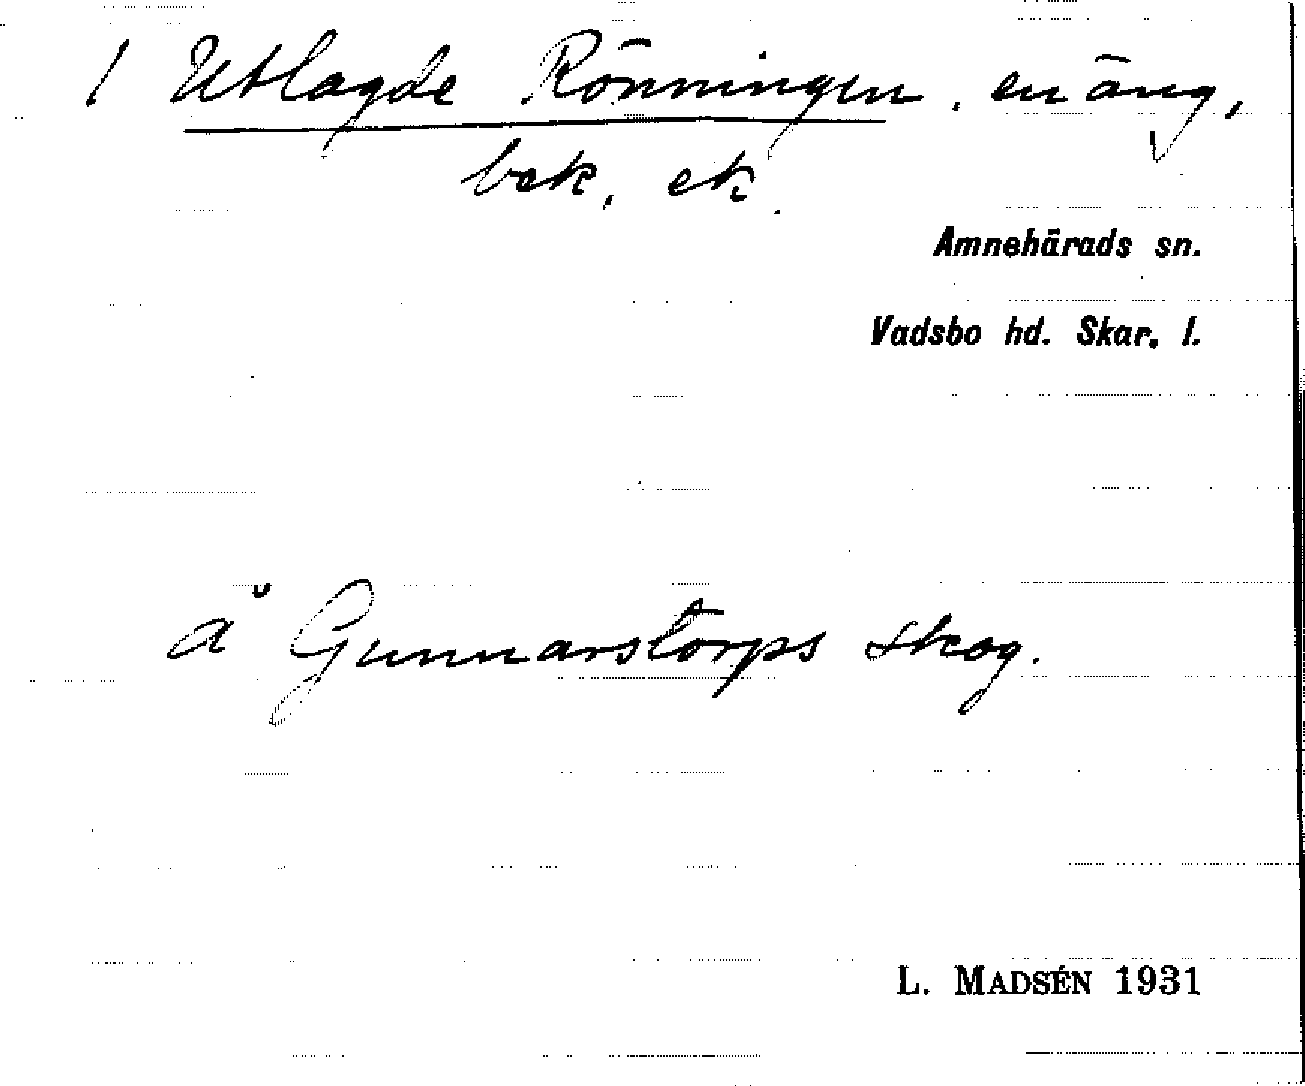 1 Utlagde Rönningen, en äng,
bek. ek.
Amnehärads sn.
Vadsbo hd. Skar. l.
å Gunnarstorps skog.
L. MADSÉN 1931